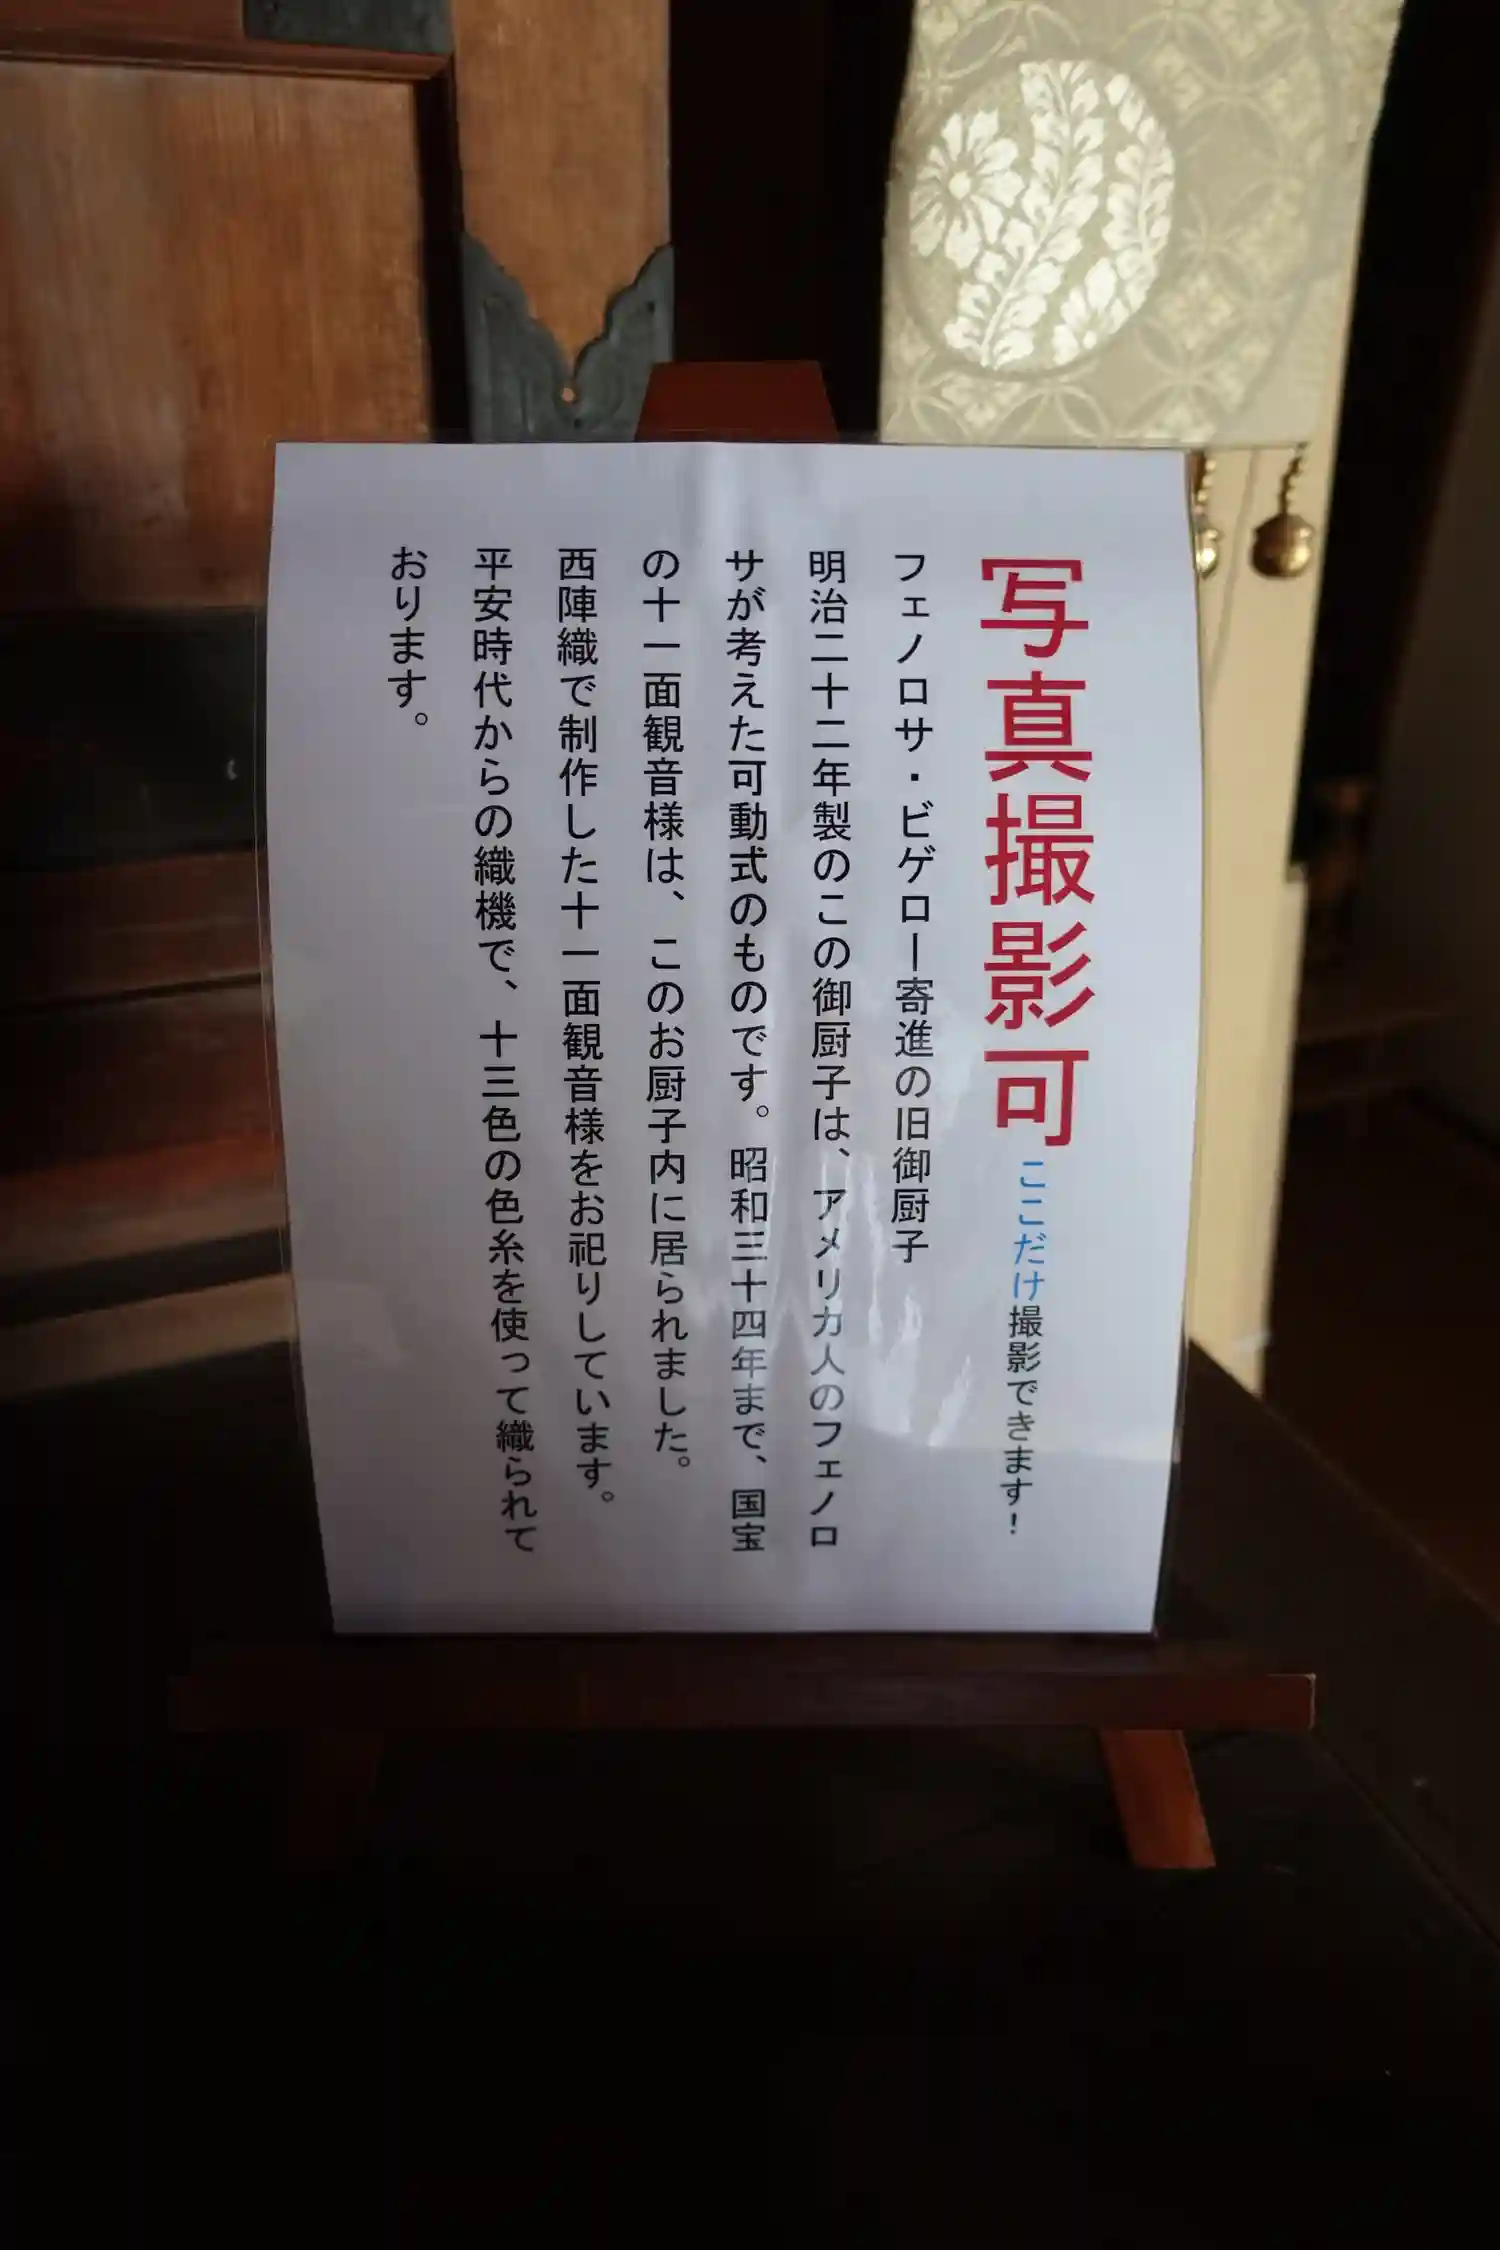 写真撮影可 ここだけ撮影できます!
フェノロサ・ビゲロー寄進の旧御厨子
明治二十二年製のこの御厨子は、アメリカ人のフェノロ
サが考えた可動式のものです。昭和三十四年まで、国宝
の十一面観音様は、このお厨子内に居られました。
西陣織で制作した十一面観音様をお祀りしています。
平安時代からの織機で、十三色の色糸を使って織られて
おります。